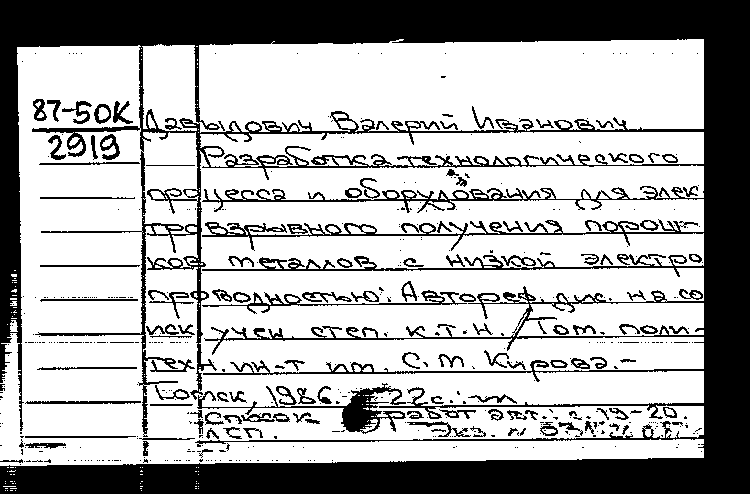 87-50К
2919
Давыдович, Валерий Иванович.
Разработка технологического
процесса и оборудования для элек-
тровзрывного получения порош-
ков металлов с низкой электро
проводностью: Автореф. дис. на со
иск. учен. степ. к.т.н. / Том. поли-
техн. ин-т им. С.М. Кирова.-
Томск, 1986. - 22с.: ил.
Список работ авт.: с. 19-20.
ДСП. Экз. N